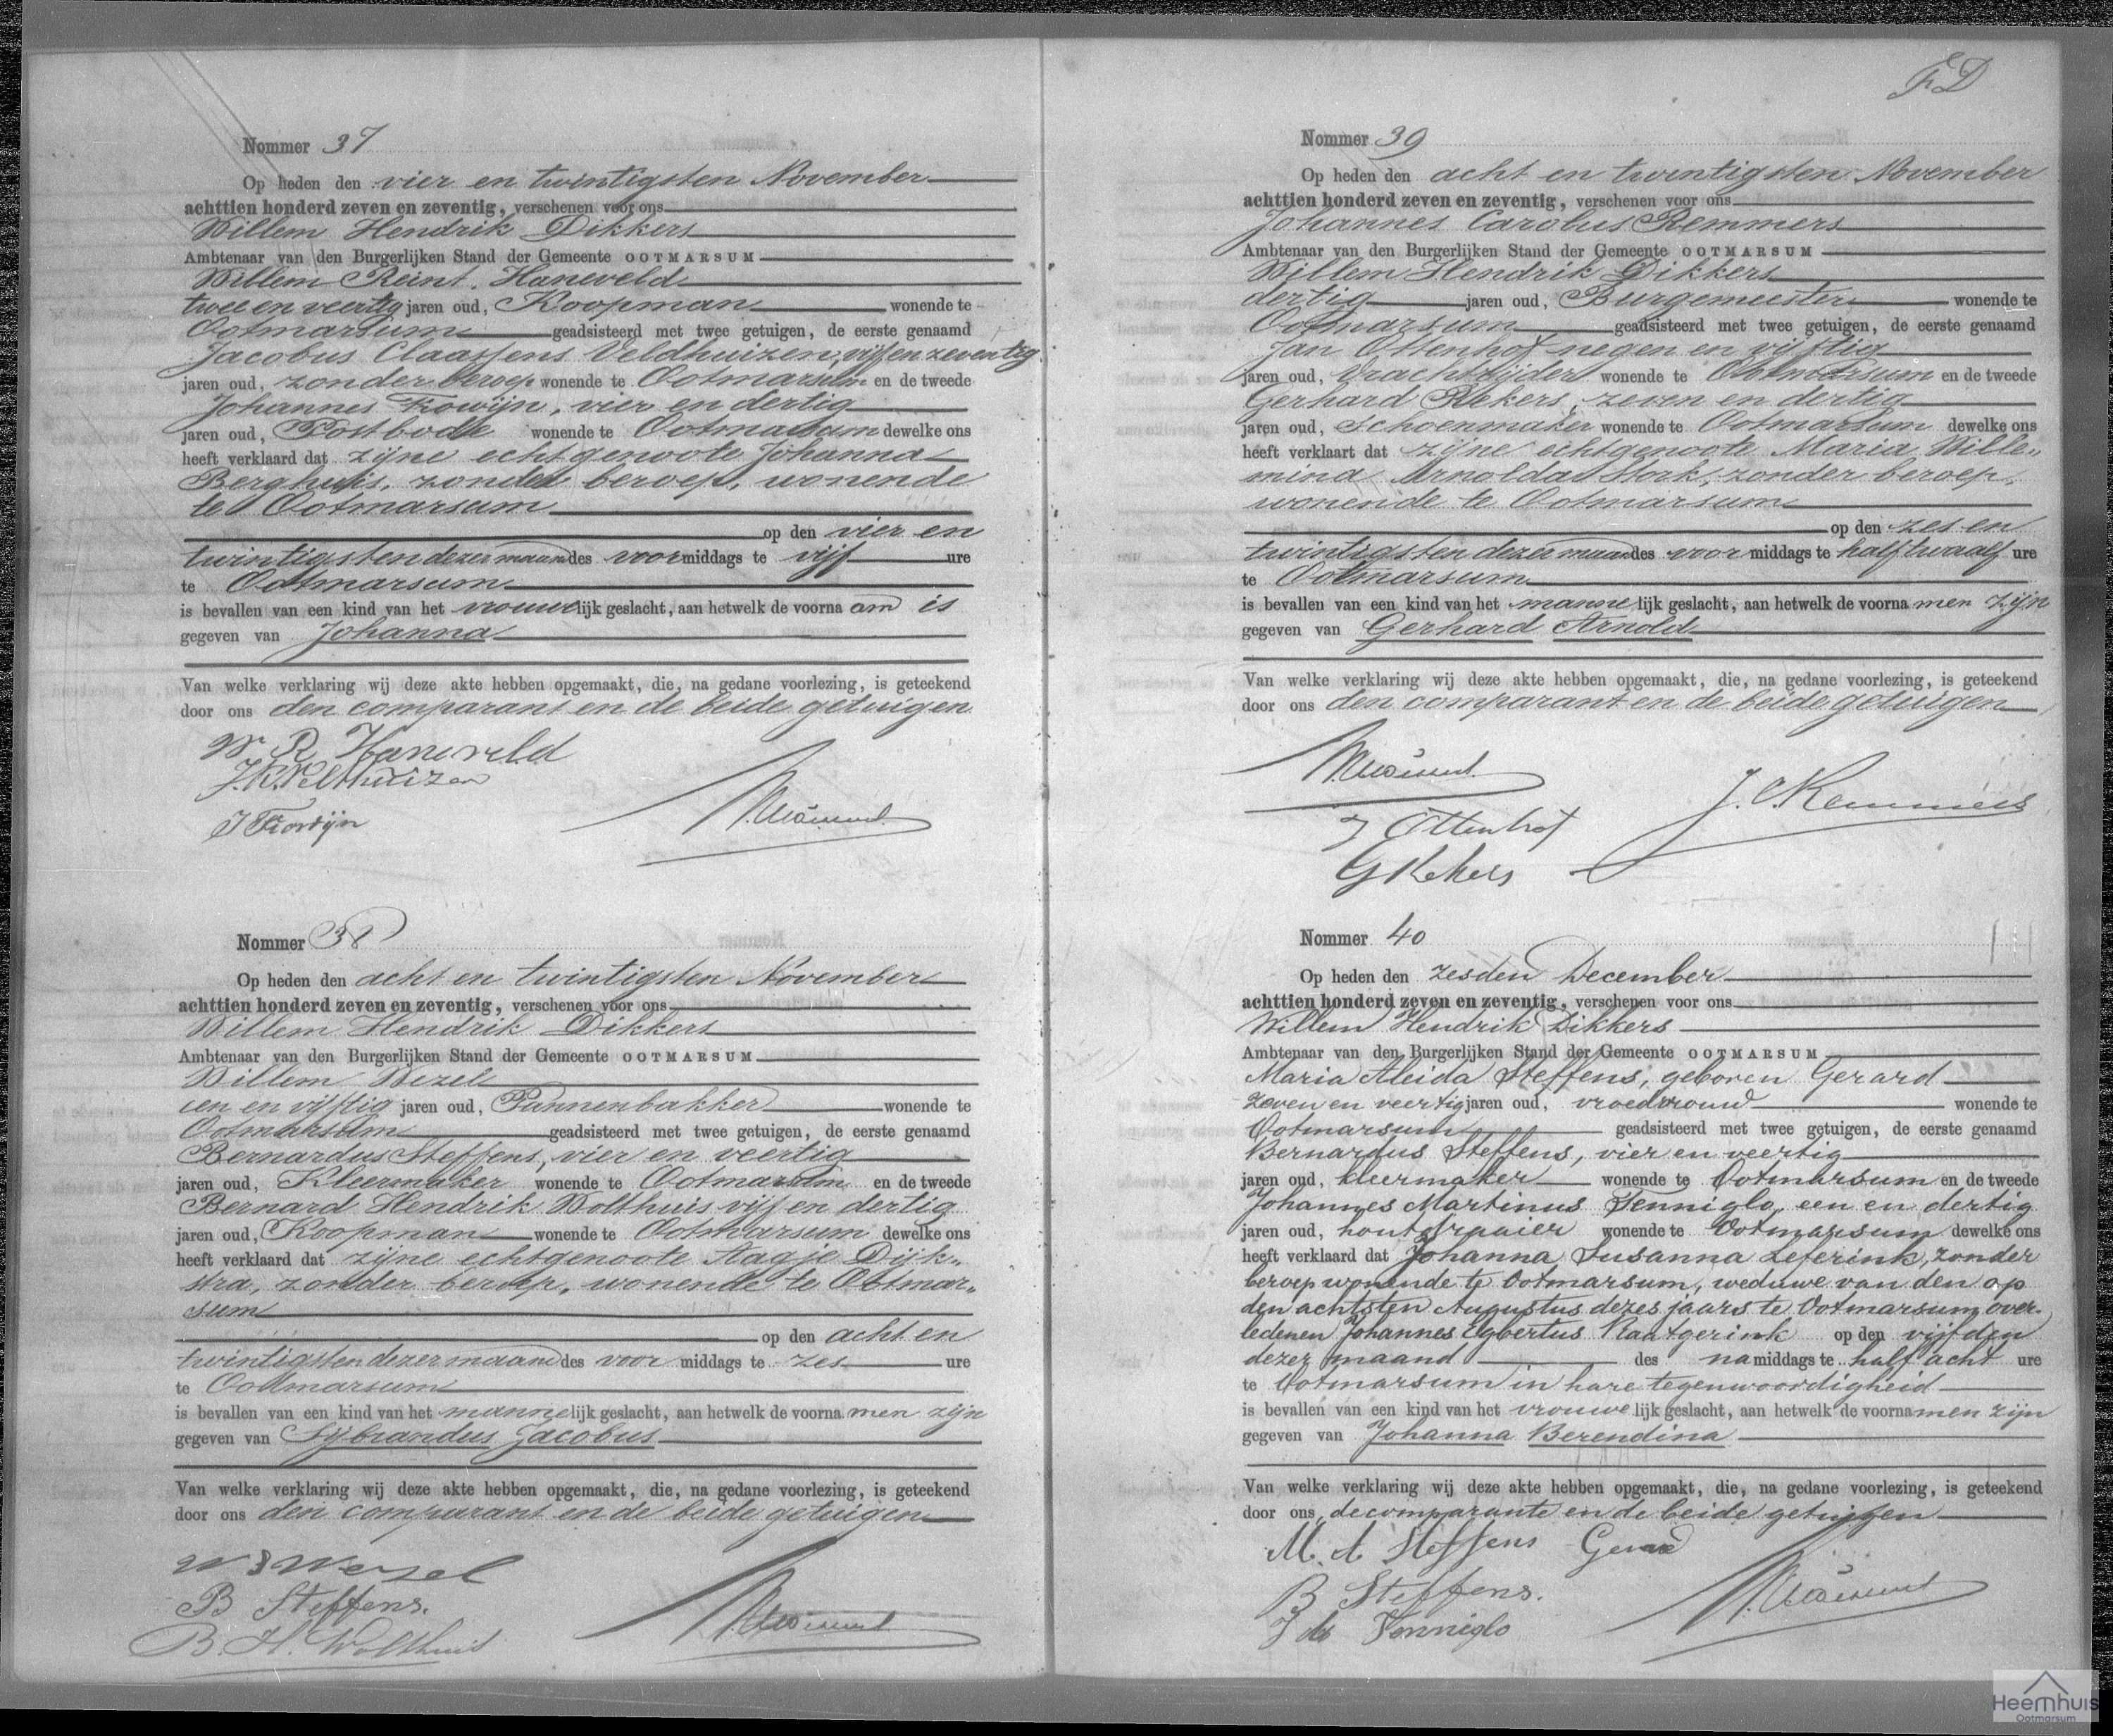 Nommer 37
Op heden den vier en twintigsten November
achttien honderd zeven en zeventig, verschenen voor ons
Willem Hendrik Dikkers
Ambtenaar van den Burgerlijken Stand der Gemeente OOTMARSUM
Willem Reint Haneveld
twee en veertig jaren oud, Koopman wonende te
Ootmarsum geadsisteerd met twee getuigen, de eerste genaamd
Jacobus Claassens Veldhuizen, vijf en zeventig
jaren oud, zonder beroep wonende te Ootmarsum en de tweede
Johannes Frowijn, vier en dertig
jaren oud, Postbode wonende te Ootmarsum dewelke ons
heeft verklaard dat zijne echtgenoote Johanna
Berghuis, zonder beroep, wonende
te Ootmarsum
op den vier en
twintigsten dezer maand des voormiddags te vijf ure
te Ootmarsum
is bevallen van een kind van het vrouwelijk geslacht, aan hetwelk de voorna am is
gegeven van Johanna
Van welke verklaring wij deze akte hebben opgemaakt, die, na gedane voorlezing, is geteekend
door ons den comparant en de beide getuigen
W R Haneveld
J Frowijn
Nommer 38
Op heden den acht en twintigsten November
achttien honderd zeven en zeventig, verschenen voor ons
Willem Hendrik Dikkers
Ambtenaar van den Burgerlijken Stand der Gemeente OOTMARSUM
Willem Wezel
een en vijftig jaren oud, Pannenbakker wonende te
Ootmarsum geadsisteerd met twee getuigen, de eerste genaamd
Bernardus Steffens, vier en veertig
jaren oud, Kleermaker wonende te Ootmarsum en de tweede
Bernard Hendrik Wolthuis vijf en dertig
jaren oud, Koopman wonende te Ootmarsum dewelke ons
heeft verklaard dat zijne echtgenoote Aagje Dijk„
stra, zonder beroep, wonende te Ootmar„
sum
op den acht en
twintigsten dezer maand des voor middags te zes ure
te Ootmarsum
is bevallen van een kind van het mannelijk geslacht, aan hetwelk de voorna men zijn
gegeven van Sijbrandus Jacobus
Van welke verklaring wij deze akte hebben opgemaakt, die, na gedane voorlezing, is geteekend
door ons den comparant en de beide getuigen
Wezel
B Steffens.
B. H. Wolthuis
FD
Nommer 39
Op heden den acht en twintigsten November
achttien honderd zeven en zeventig, verschenen voor ons
Johannes Carolus Remmers
Ambtenaar van den Burgerlijken Stand der Gemeente OOTMARSUM
Willem Hendrik Dikkers
dertig jaren oud, Burgemeester wonende te
Ootmarsum geadsisteerd met twee getuigen, de eerste genaamd
Jan Ottenhof negen en vijftig
jaren oud, Vrachtrijder wonende te Ootmarsum en de tweede
Gerhard Rekers, zeven en dertig
jaren oud, Schoenmaker wonende te Ootmarsum dewelke ons
heeft verklaart dat zijne echtgenoote Maria Wille„
mina Arnolda Stork, zonder beroep,
wonende te Ootmarsum
op den zes en
twintigsten dezer maand des voor middags te half twaalf ure
te Ootmarsum
is bevallen van een kind van het mannelijk geslacht, aan hetwelk de voorna men zijn
gegeven van Gerhard Arnold
Van welke verklaring wij deze akte hebben opgemaakt, die, na gedane voorlezing, is geteekend
door ons den comparant en de beide getuigen
J. C. Remmers
J Ottenhof
G Rekers
Nommer 40
Op heden den zesden December
achttien honderd zeven en zeventig, verschenen voor ons
Willem Hendrik Dikkers
Ambtenaar van den Burgerlijken Stand der Gemeente OOTMARSUM
Maria Aleida Steffens, geboren Gerard
zeven en veertig jaren oud, vroedvrouw wonende te
Ootmarsum geadsisteerd met twee getuigen, de eerste genaamd
Bernardus Steffens, vier en veertig
jaren oud, kleermaker wonende te Ootmarsum en de tweede
Johannes Martinus Tenniglo, een en dertig
jaren oud, houtdraaier wonende te Ootmarsum dewelke ons
heeft verklaard dat Johanna Susanna Leferink, zonder
beroep wonende te Ootmarsum, weduwe van den op
den achtsten Augustus dezes jaars te Ootmarsum over„
ledenen Johannes Egbertus Raatgerink op den vijfden
dezer maand des namiddags te half acht ure
te Ootmarsum in hare tegenwoordigheid
is bevallen van een kind van het vrouwelijk geslacht, aan hetwelk de voornamen zijn
gegeven van Johanna Berendina
Van welke verklaring wij deze akte hebben opgemaakt, die, na gedane voorlezing, is geteekend
door ons, de comparante en de beide getuigen
M. A Steffens Gerard
B Steffens.
Tenniglo
Heemhuis
Ootmarsum